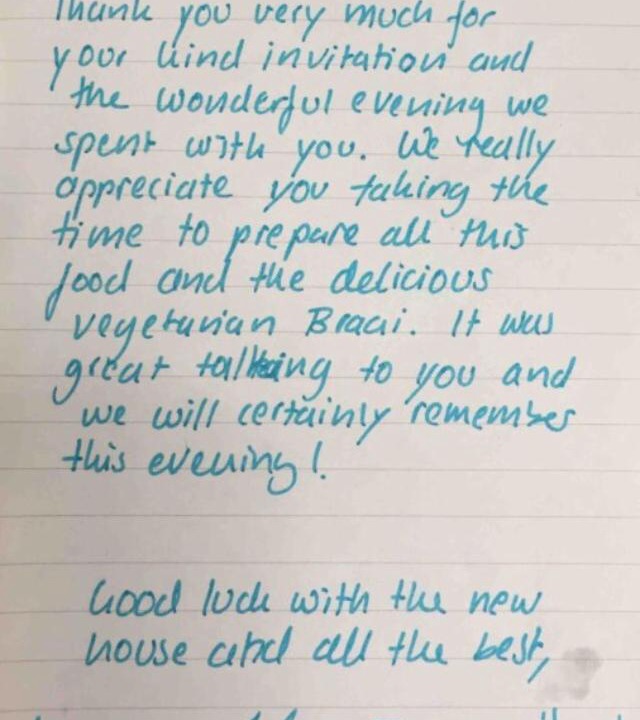 Thank you very much for
your kind invitation and
the wonderful evening we
spent with you. We really
appreciate you taking the
time to prepare all this
food and the delicious
vegetarian Braai. It was
great talking to you and
we will certainly remember
this evening!
Good luck with the new
house and all the best,